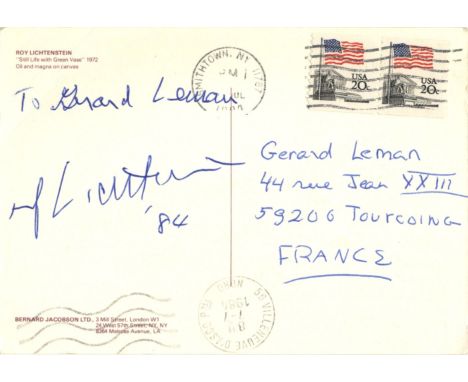 ROY LICHTENSTEIN
"Still Life with Green Vase" 1972
Oil and magna on canvas
SMITHTOWN, NY 11787
PM 1
USA
20c
USA
20c
To Gerard Leman
Gerard Leman
44 rue Jean XXIII
59200 Tourcoing
FRANCE
Lichtenstein
'84
BERNARD JACOBSON LTD., 3 Mill Street, London W1
24 West 57th Street, NY, NY
8364 Melrose Avenue, LA
59 VILLENEUVE D'ASCQ PPAL
8H
7-7
1984
NORD